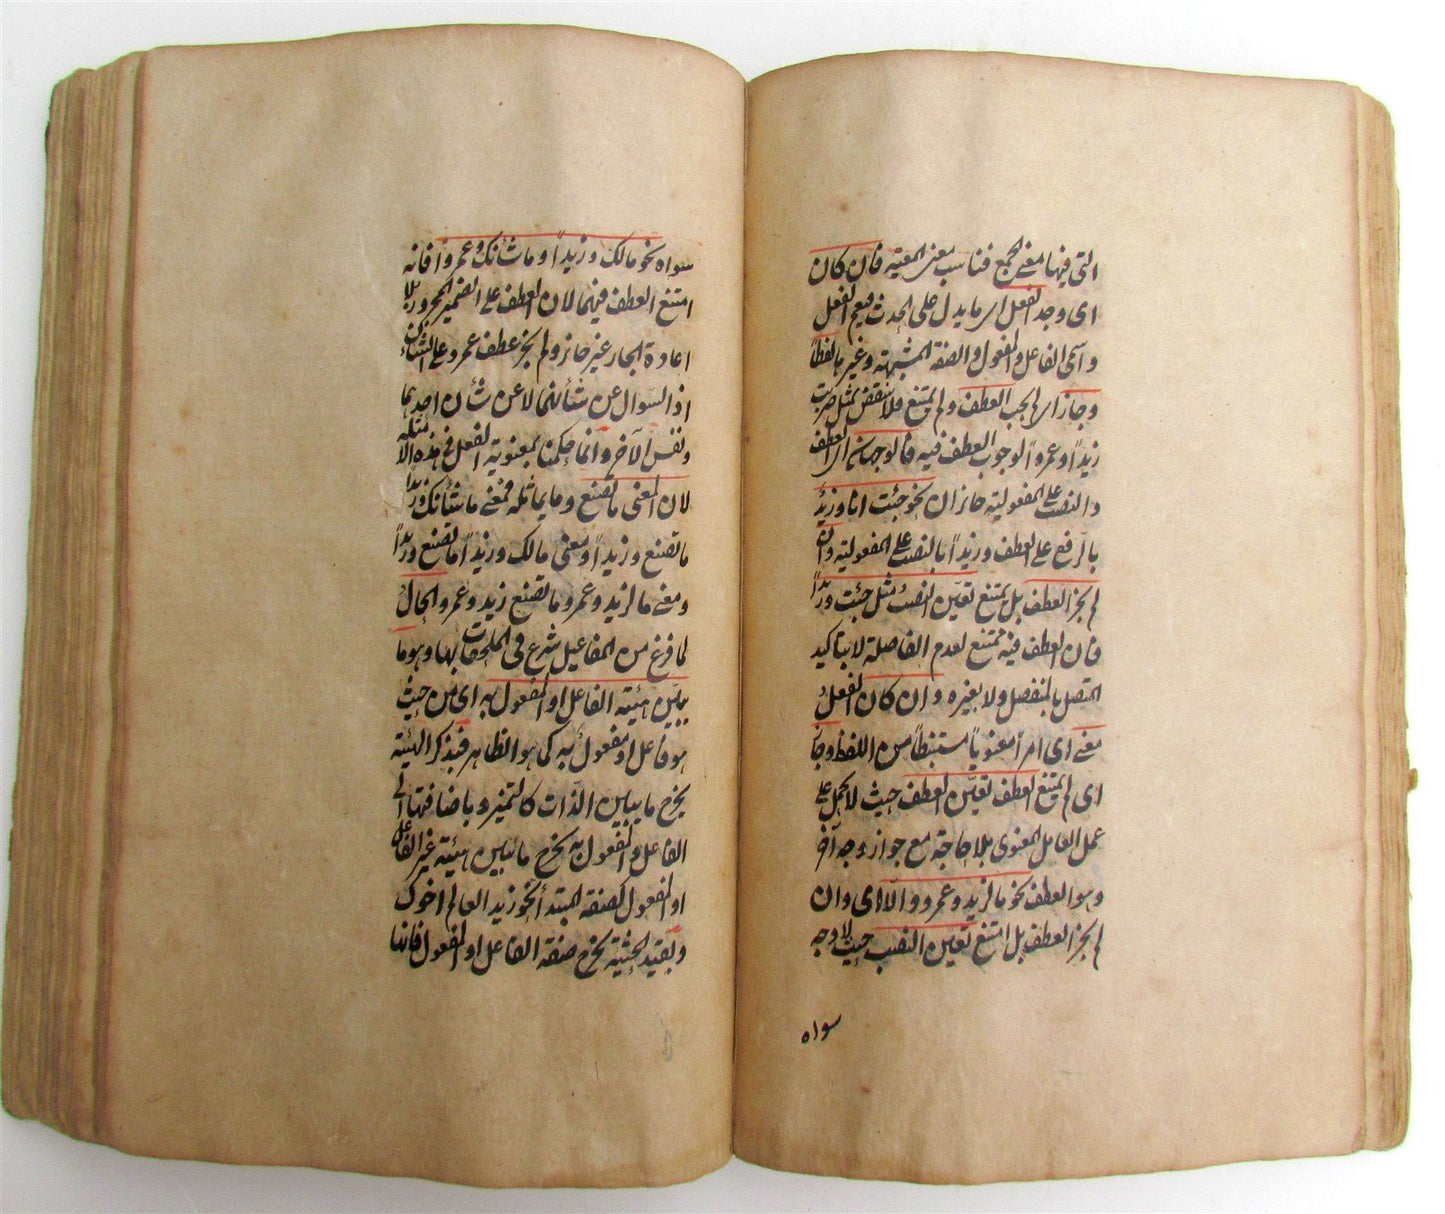 التى فيها معنى الجمع فناسب معنى المعية فان كان
اى وجد الفعل اى ما يدل على الحدث فيعم الفعل
واسمى الفاعل والمفعول والصفة المشبهة وغيرها لفظاً
وجاز اى لم يجب العطف ولم يمتنع فلا ينقض بمثل ضربت
زيداً وعمرواً لوجوب العطف فيه فالوجهان اى العطف
والنصب على المفعولية جائزان نحو جئت انا وزيد
بالرفع على العطف وزيداً بالنصب على المفعولية وان
لم يجز العطف بل يمتنع تعين النصب مثل جئت وزيداً
فان العطف فيه ممتنع لعدم الفاصلة لا بتاكيد
المتصل بالمنفصل ولا بغيره وان كان الفعل
معنى اى امراً معنوياً مستنبطاً من اللفظ وجاز
اى لم يمتنع العطف تعين العطف حيث لا يحمل على
عمل العامل المعنوى بلا حاجة مع جواز وجه آخر
وهو العطف نحو ما لزيد وعمرو والا اى وان
لم يجز العطف بل امتنع تعين النصب حيث لا وجه
سواه
سواه نحو مالك وزيداً وما شأنك وعمرواً فانه
امتنع العطف فيهما لان العطف على الضمير المجرور بلا
اعادة الجار غير جائز ولم يجز عطف عمرو على الشأن
اذ السؤال عن شأنهما لا عن شأن احدهما
ونفس الآخر وانما حكمنا بمعنوية الفعل فى هذه الامثلة
لان المعنى ما تصنع وما يماثله فمعنى ما شأنك وزيداً
ما تصنع وزيداً ومعنى مالك وزيداً ما تصنع وزيداً
ومعنى ما لزيد وعمرو ما تصنع زيد وعمرو الحال
لما فرغ من المفاعيل شرع فى الملحقات بها وهو ما
يبين هيئة الفاعل او المفعول به اى من حيث
هو فاعل او مفعول به كما هو الظاهر فبذكر الهيئة
يخرج ما يبين الذات كالتميز وباضافتها الى
الفاعل والمفعول به يخرج ما يبين هيئة غير الفاعل
او المفعول كصفة المبتدأ نحو زيد العالم اخوك
وبقيد الحيثية يخرج صفة الفاعل او المفعول فانها